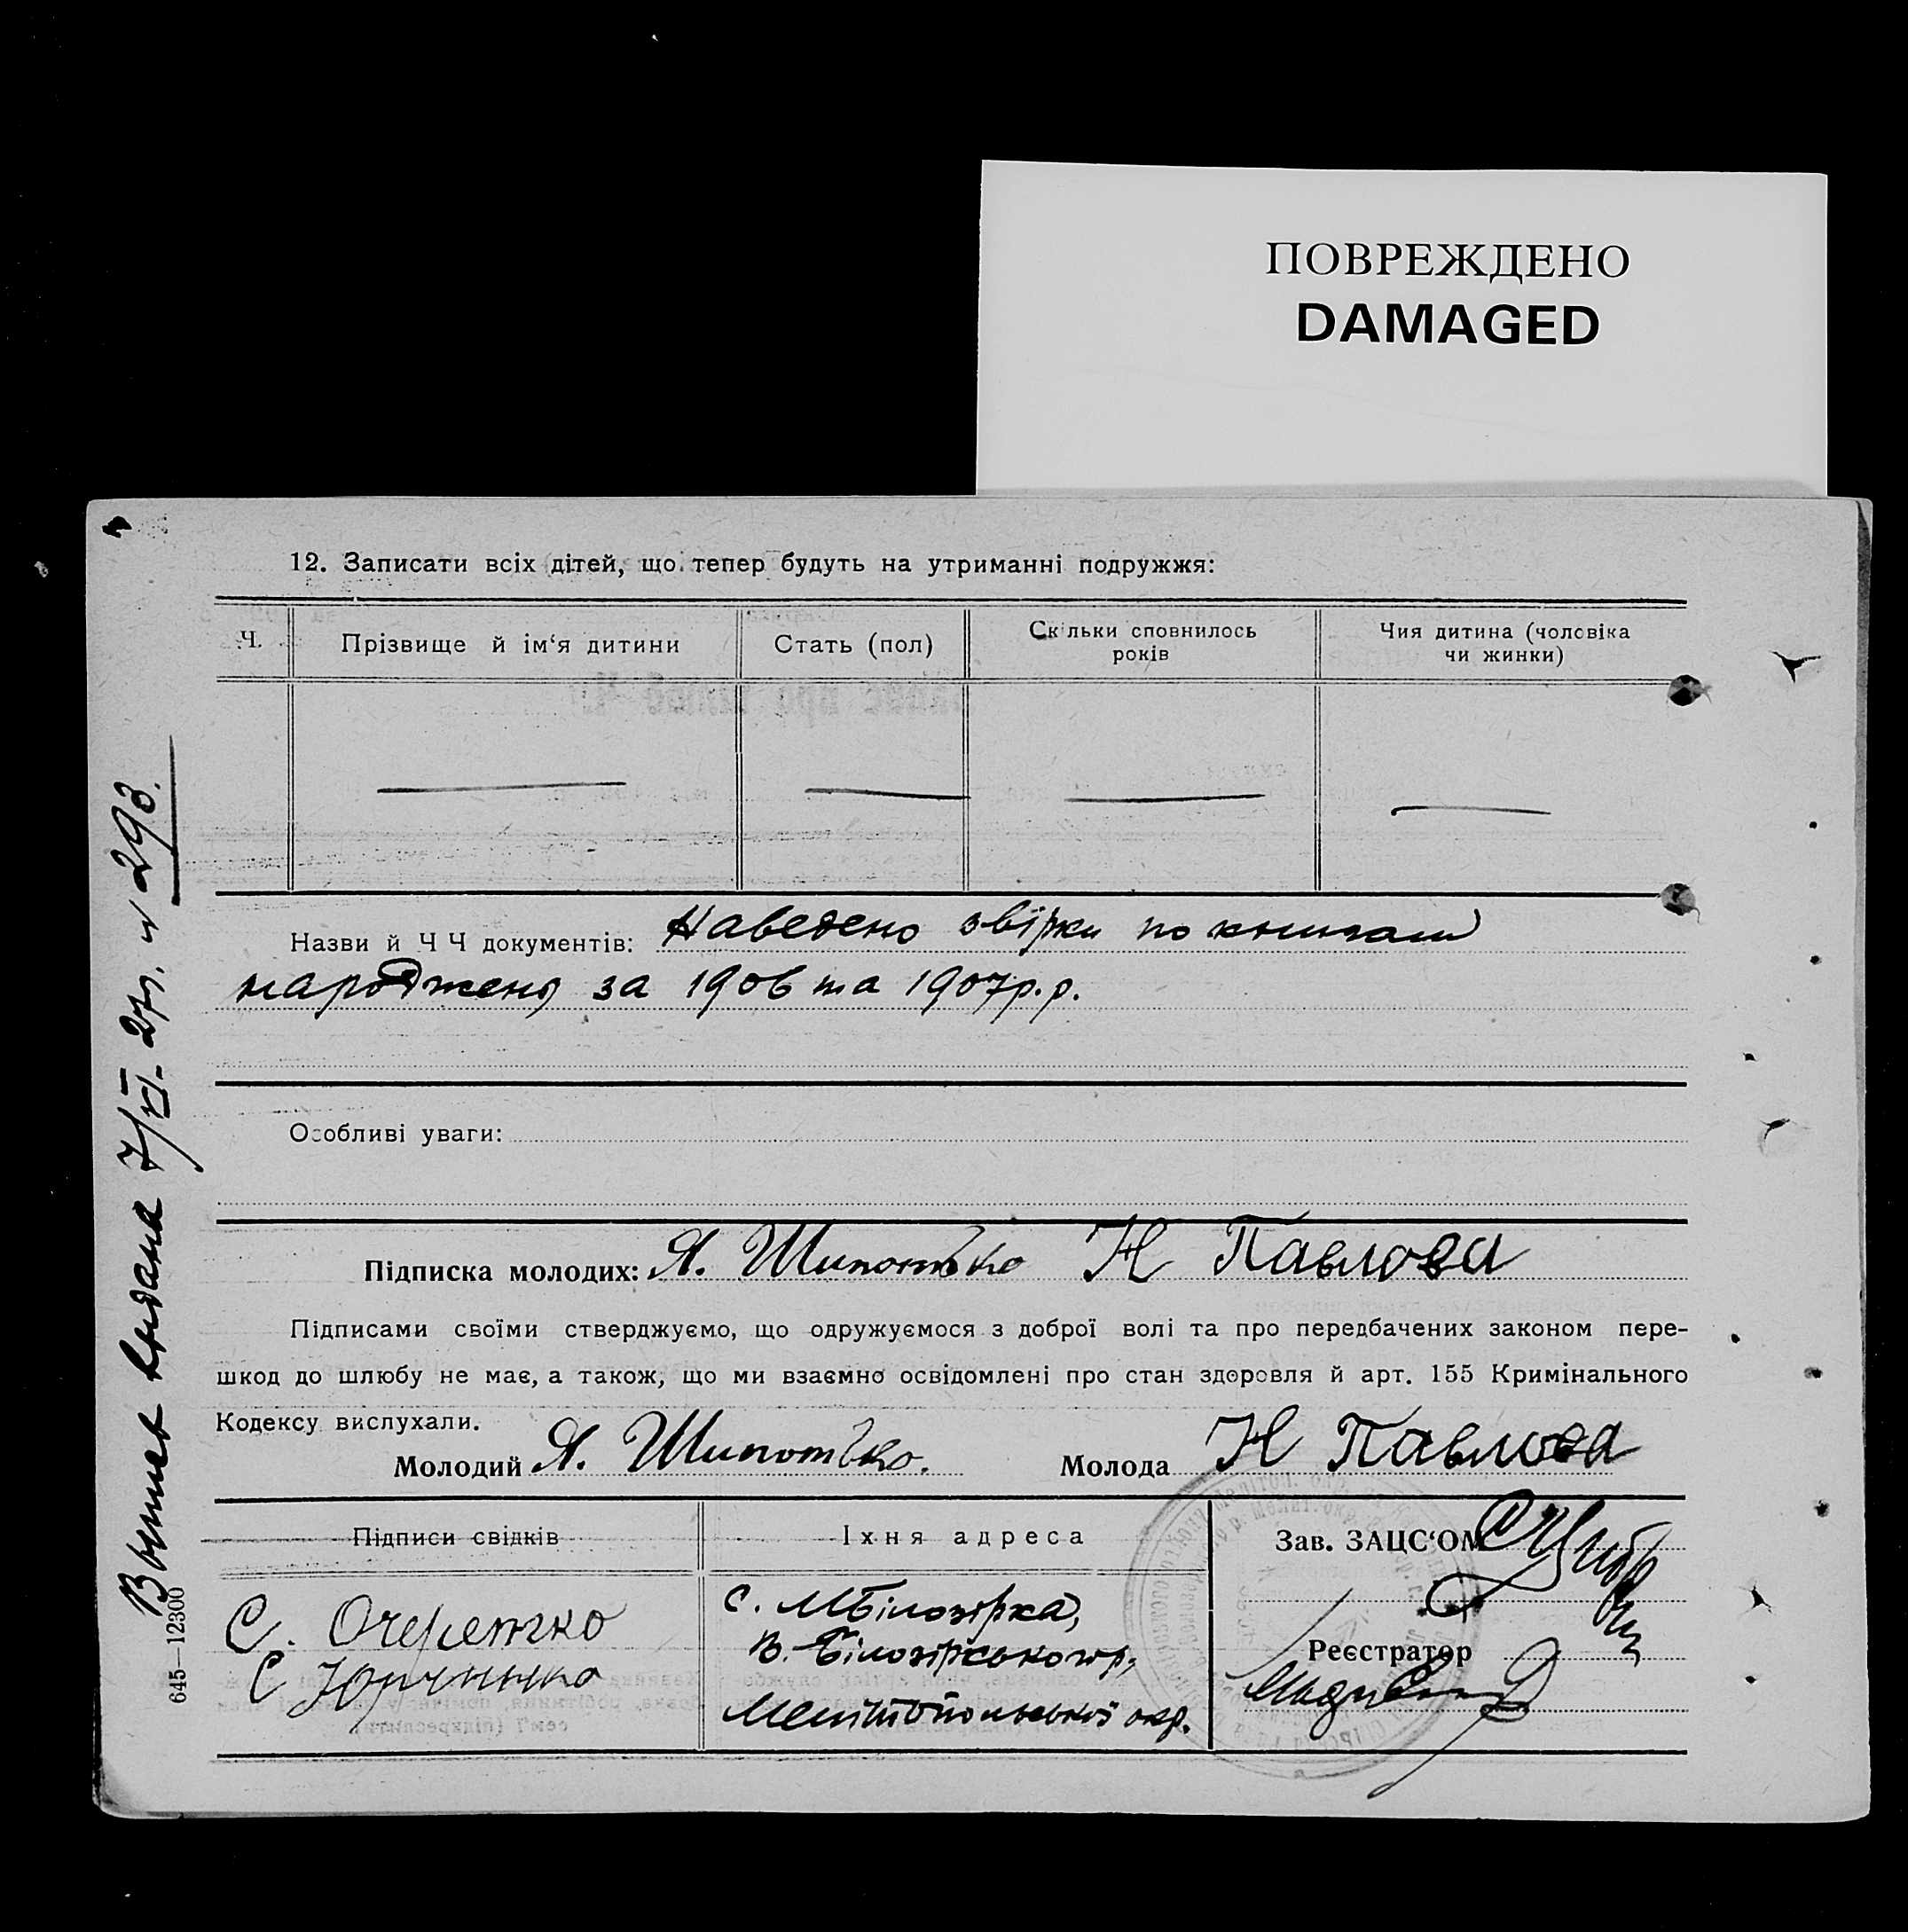 ПОВРЕЖДЕНО
DAMAGED
12. Записати всіх дітей, що тепер будуть на утриманні подружжя:
Ч.
Прізвище й ім‘я дитини
Стать (пол)
Скільки сповнилось
років
Чия дитина (чоловіка
чи жинки)
Назви й Ч Ч документів: Наведено звірки по книгам
народжень за 1906 та 1907 р.р.
Особливі уваги:
Підписка молодих: Я. Шипотько Н Павлова
Підписами своїми стверджуємо, що одружуємося з доброї волі та про передбачених законом пере-
шкод до шлюбу не має, а також, що ми взаємно освідомлені про стан здоровля й арт. 155 Кримінального
Кодексу вислухали.
Молодий Я. Шипотько. Молода Н Павлова
Підписи свідків
Їхня адреса
Зав. ЗАЦС‘ОМ
С. Очеретько
С
с. МБілозірка,
В.-Білозірського р,
Мелітопольської окр.
Реєстратор
Выпись выдана 7/VI-27г. № 293.
645—12300